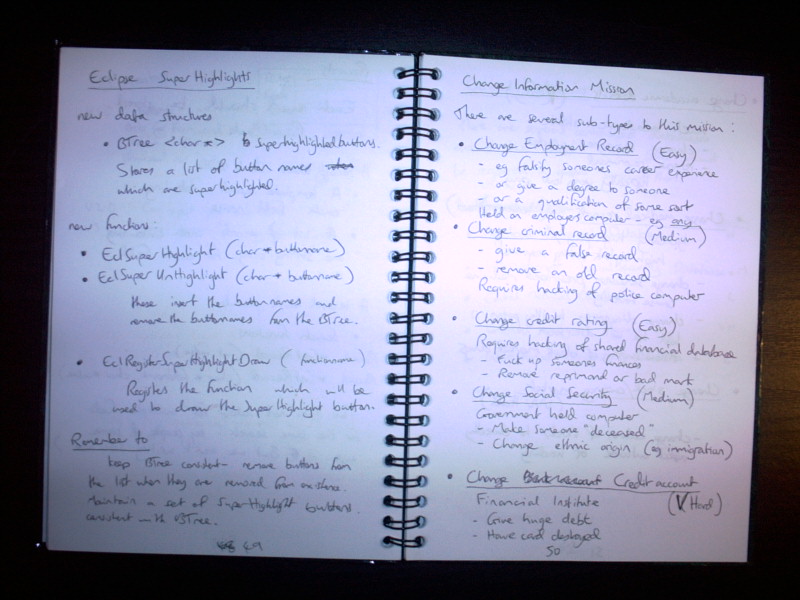 Eclipse SuperHighlights
new data structures
• BTree <char *> superhighlightedbuttons.
Stores a list of button names
which are superhighlighted.
new functions:
• EclSuperHighlight (char * buttonname)
• EclSuperUnHighlight (char * buttonname)
these insert the buttonnames and
remove the buttonnames from the BTree.
• EclRegisterSuperHighlightDraw ( functionname )
Registers the function which will be
used to draw the SuperHighlight button.
Remember to
keep BTree consistent - remove buttons from
the list when they are removed from existence.
Maintain a set of SuperHighlight buttons
consistent with BTree.
49
Change Information Mission
There are several sub-types to this mission :
• Change Employment Record (Easy)
- eg falsify someones career experience
- or give a degree to someone
- or a qualification of some sort
Held on employers computer - eg any
• Change criminal record (Medium)
- give a false record
- remove an old record
Requires hacking of police computer
• Change credit rating (Easy)
Requires hacking of shared financial database
- Fuck up someones finances
- Remove reprimand or bad mark
• Change Social Security (Medium)
Government held computer
- Make someone "deceased"
- Change ethnic origin (eg immigration)
• Change Credit account
Financial Institute (V Hard)
- Give huge debt
- Have card destroyed
50